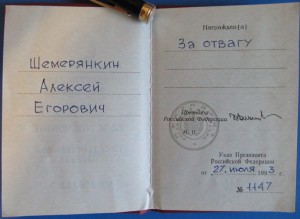 Шемерянкин
Алексей
Егорович
Награждён(а)
За отвагу
Президент
Российской Федерации
М. П.
Указ Президента
Российской Федерации
от 27. июля 1993 г.
№ 1147